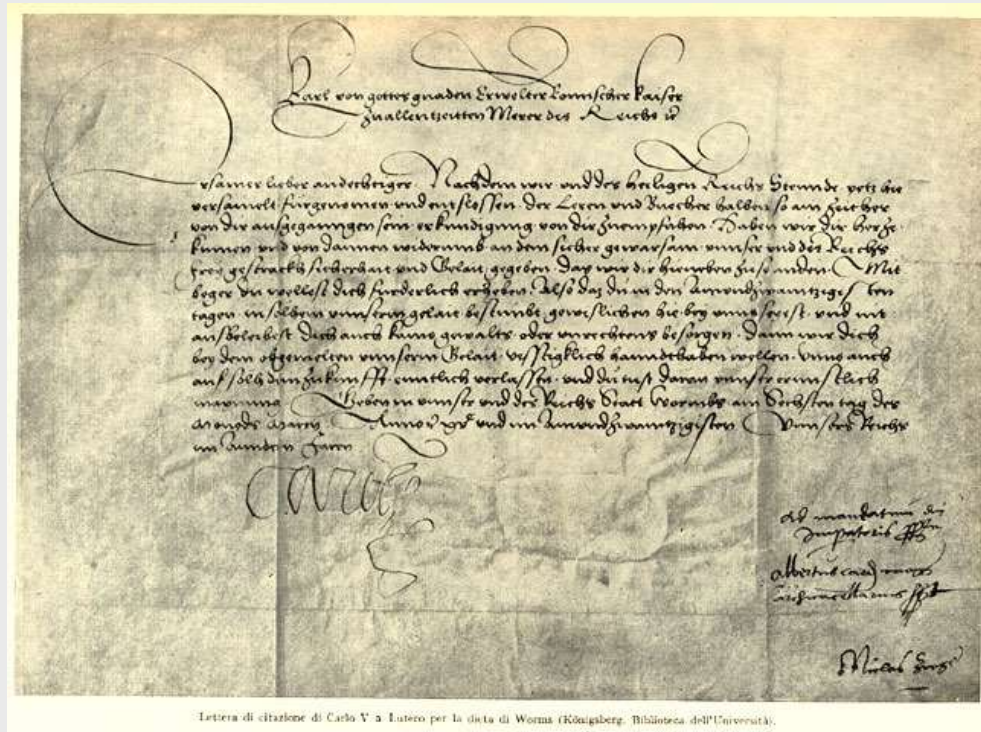 Karl von gottes gnaden Erwelter Romischer Kaiser
zuallentzeitten Merer des Reichs
Ersamer lieber andechtiger. Nachdem wir vnd des heiligen Reichs Stennde yetz hie
versamelt fürgenomen vnd entslossen der Leren vnd Buecher halben so ain Zeit her
von dir ausgegangen sein erkundigung von dir zuempfahen. Haben wir dir herzu-
kumen vnd von dannen widerumb an dein sicher gewarsam vnnser vnd des Reichs
frey gestrackh sicherhait vnd Gelait gegeben daz wir dir hieneben zuesenden. Mit
beger du wellest dich furderlich erheben. Also daz du in den Ainundzwaintzigisten
tagen in solhem vnnserm gelait bestimbt gewislichen hie bey vnns seyest. vnd nit
ausbeleibest Dich auch kains gewalts oder vnrechtens besorgen. Dann wir dich
bey dem obgemelten vnnserm Gelait vesstigklich hanndthaben wellen. vnns auch
auf solh dein Zukunfft enntlich verlassen. vnd du tust daran vnnser ernnstlich
maynung. Geben in vnnser vnd des Reichs Statt Wormbs am Sechsten tag des
Monads Marcy Anno vnd im Ainundzwaintzigisten Vnnsers Reichs
im Anndern Jaren
Carolus
Ad mandatum
Imperatoris
Albertus
archicancellarius
Niclas
Lettera di citazione di Carlo V a Lutero per la dieta di Worms (Königsberg. Biblioteca dell'Università).